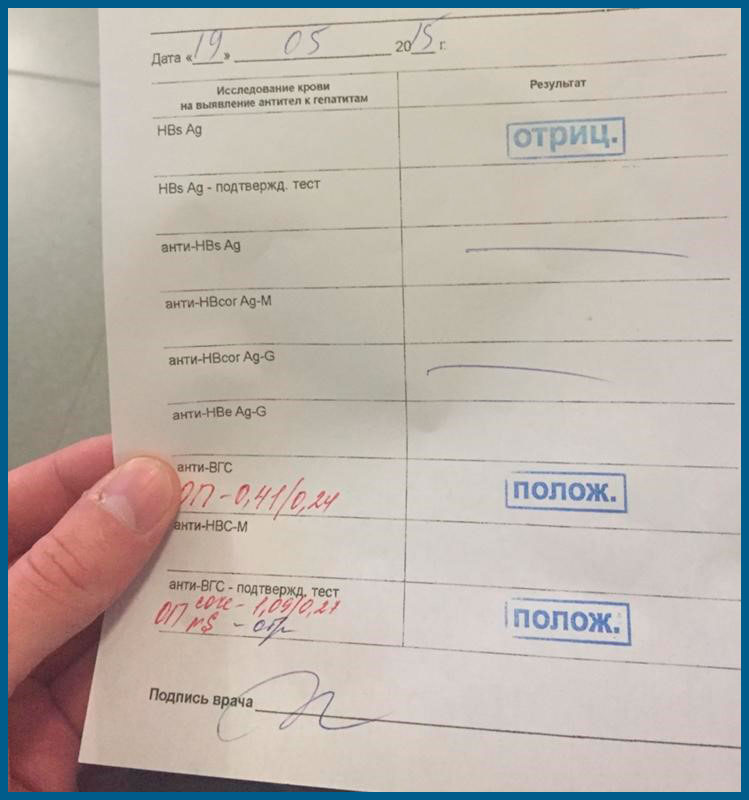 Дата «19» 05 2015 г.
Исследование крови
на выявление антител к гепатитам
Результат
HBs Ag
ОТРИЦ.
HBs Ag - подтвержд. тест
анти-HBs Ag
анти-HBcor Ag-M
анти-HBcor Ag-G
анти-HBe Ag-G
анти-ВГС
ОП - 0,41/0,24
ПОЛОЖ.
анти-НВС-М
анти-ВГС - подтвержд. тест
ОП core - 1,09/0,27
NS - отр
ПОЛОЖ.
Подпись врача